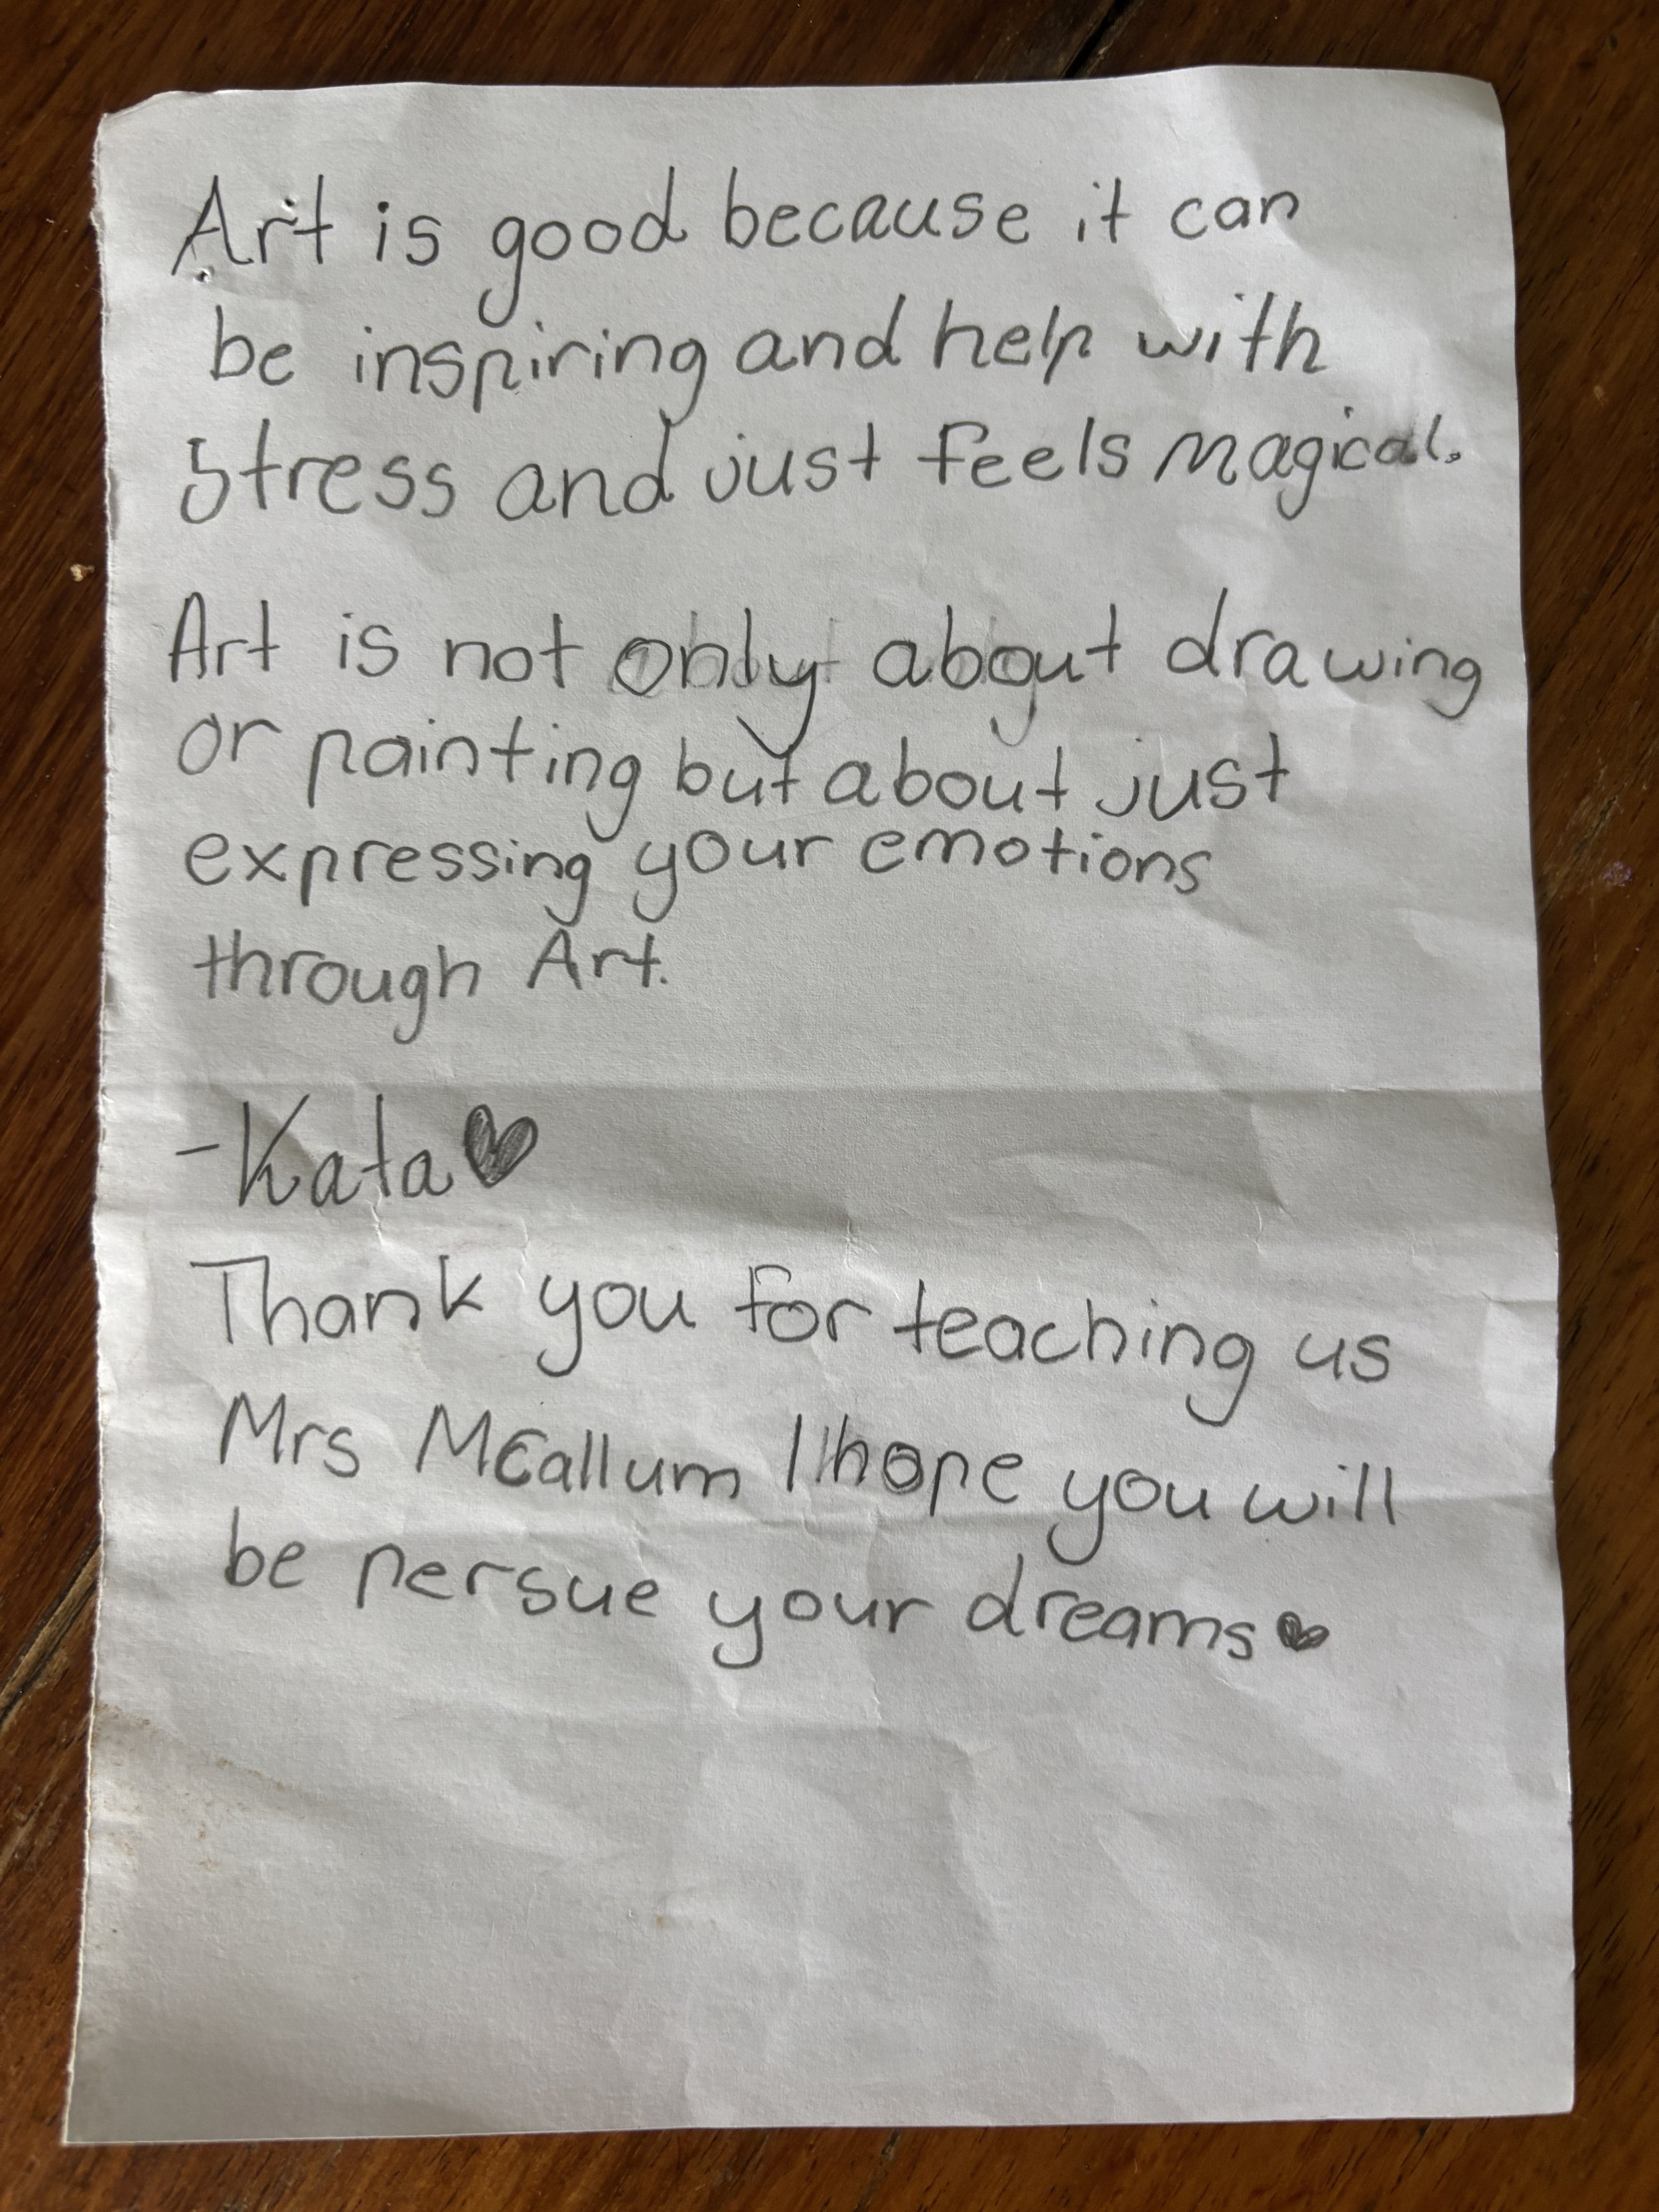 Art is good because it can
be inspiring and help with
stress and just feels magical.
Art is not only about drawing
or painting but about just
expressing your emotions
through Art.
-Kata♥
Thank you for teaching us
Mrs McCallum I hope you will
be persue your dreams♥